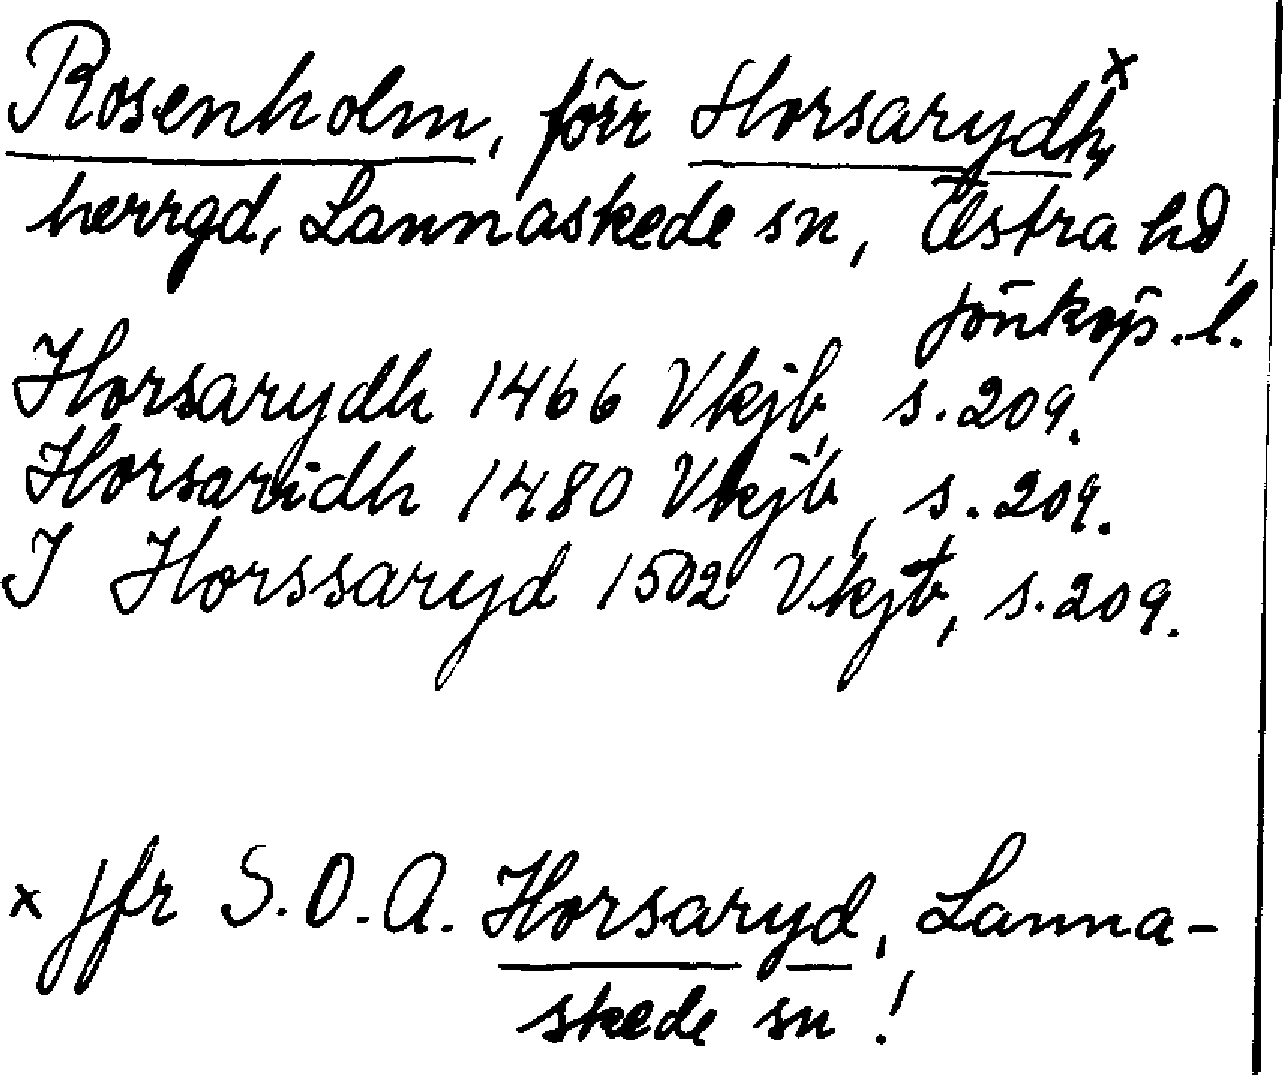 Rosenholm, förr Horsarydh, x
herrgd, Lannaskede sn, Östra hd,
Jönköp. l.
Horsarydh 1466 Vkjb, s. 209.
Horsaridh 1480 Vkjb, s. 209.
I Horssaryd 1502 Vkjb, s. 209.
x jfr S.O.A. Horsaryd, Lanna-
skede sn!